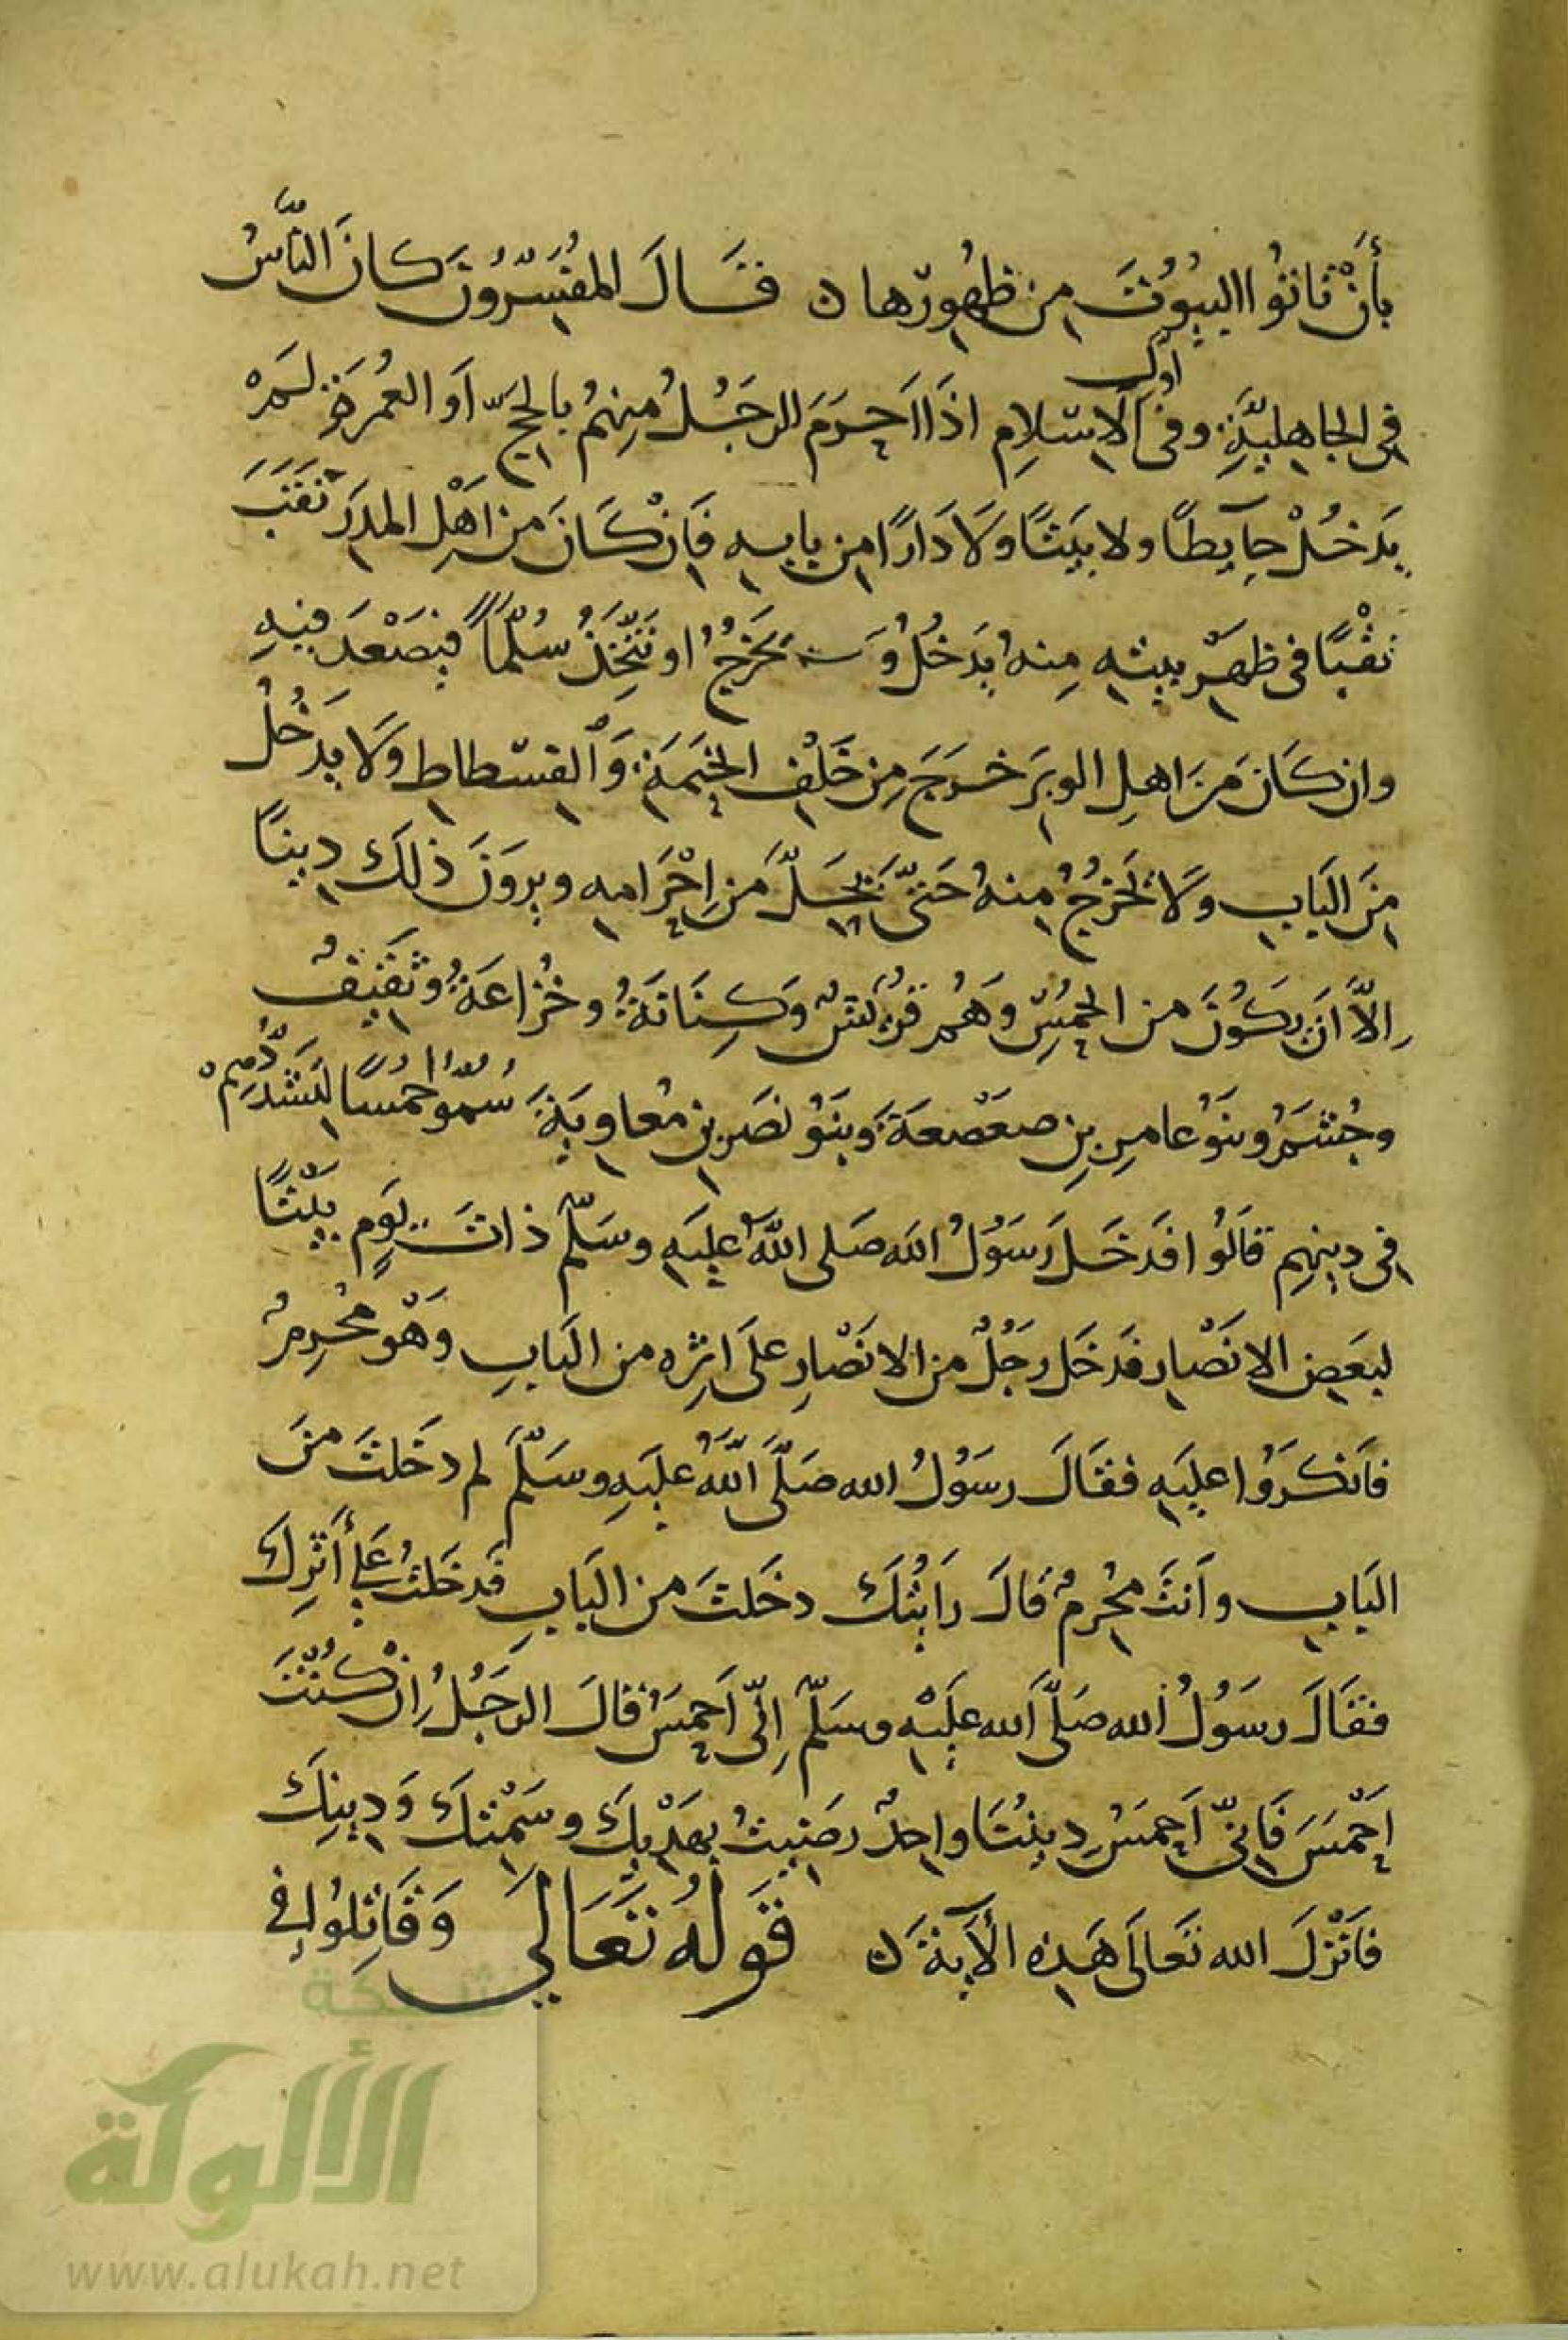 بأَنْ تَاتوُا البيُوُتَ من ظُهُورِها ن فقَالَ المُفسّرُونَ كانَ النَّاسُ
في الجاهِليَّةِ وفى أول الاسْلامِ اذَا اَحرَمَ الرجَُلُ مِنهُمْ بالحجِّ اَو العُمرَةِ لَمْ
يَدخُلْ حآيطًا ولا بَيتًا ولَا دَارًا من بابِه فَاِنْ كَانَ مِن اَهْلِ المدَرِ نَقَبَ
نَقْبًا في ظَهْرِ بيتِه مِنهُ يَدخُلُ وَ يَخرُجُ او يَتّخِذُ سُلّمًا فيَصْعَدَ فيهِ
وان كَانَ مِن اهلِ الوبَرِ خرَجَ مِن خَلْفِ الخَيمَةِ وَالفسْطاطِ ولَا يدَخُلُ
مِنَ البَابِ ولَا يَخرُجُ منهُ حَتىّ يَحِلَّ مِن اِحْرَامه ويرَوَنَ ذلكَ دِينًا
اِلَّا اَن يكَوُنَ من الحُمسِ وَهُم قُرَيشٌ وَكِنَانَةُ وخُزاعَةُ وثَقيفُ
وجُشَمُ وبَنوُ عامرِ بنِ صعَصْعَةَ وبنَوُ نصَرِ بنِ مُعاويَةَ سُمّوُا حُمسًا لتَشَدُّدِهِمْ
فى دِينِهِم قالَوُا فدَخَلَ رَسوُلُ الله صَلى اللهُ عليَهِ وسَلّمَ ذاتَ يَومٍ بَيتًا
لبعَضِ الانَصْارِ فدَخَلَ رجَُلٌ من الانصْارِ علىَ اثرِه من البَابِ وَهْو مُحرِمٌ
فاَنكرَوُا عليَهِ فقَالَ رسَوُلُ الله صَلَّى اللهُ عليَهِ وسَلّمَ لم دخَلتَ منَ
البَابِ واَنتَ مُحرِمٌ فَالَ رَاَيتُكَ دخَلتَ من البَابِ فَدخَلتُ عَلىَ أَثرِكَ
فقَالَ رسَوُلُ الله صَلّى الله علَيْهِ وسَلّمَ اِنّى اَحمَسُ فقالَ الرجَُلُ اِنْ كنُتَ
اَحْمَسَ فَاِنّى اَحمَسُ دِينُنَا واحِدٌ رضَيتُ بهَدْيِكَ وسَمْتِكَ وَدِينِكَ
فاَنْزلَ الله تَعالَى هَذِه الآيةَ ن قَولهُ تَعَالىَ وَقَاتِلوُا في
شبكة
الألوكة
www.alukah.net